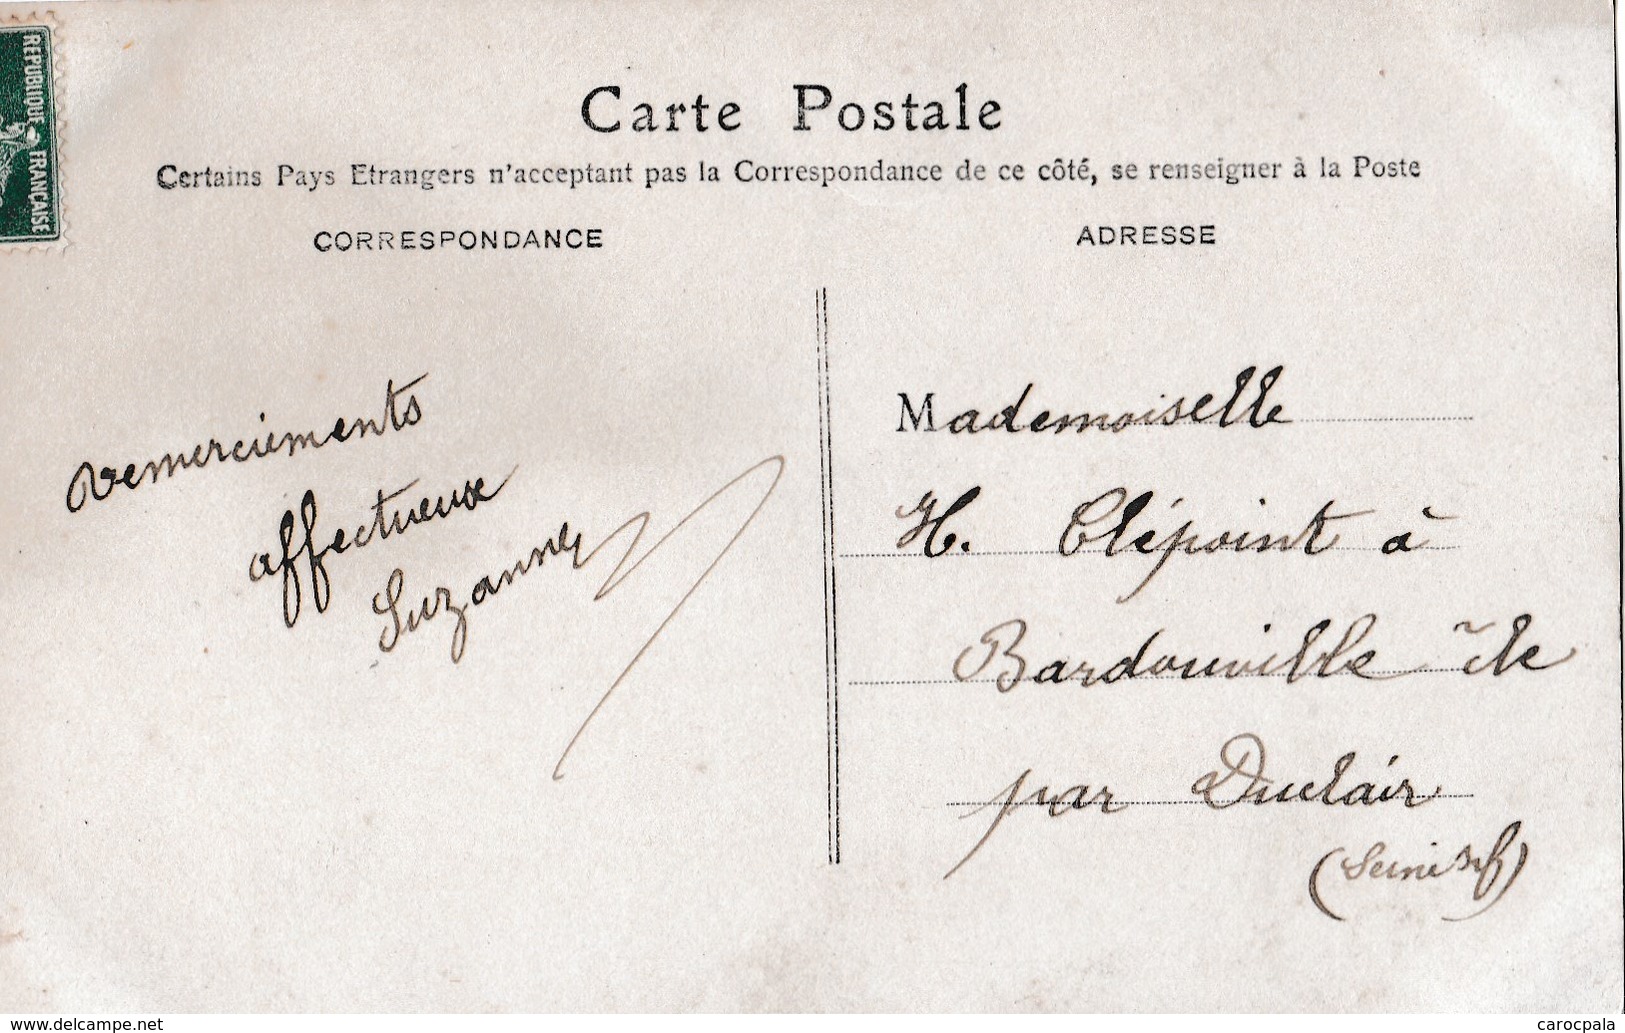 REPUBLIQUE FRANÇAISE
Carte Postale
Certains Pays Etrangers n'acceptant pas la Correspondance de ce côté, se renseigner à la Poste
CORRESPONDANCE
ADRESSE
remerciements
affectueux
Suzanne
Mademoiselle
H. Clépoint à
Bardouville
par Duclair
(Seine Inf)
www.delcampe.net
carocpala